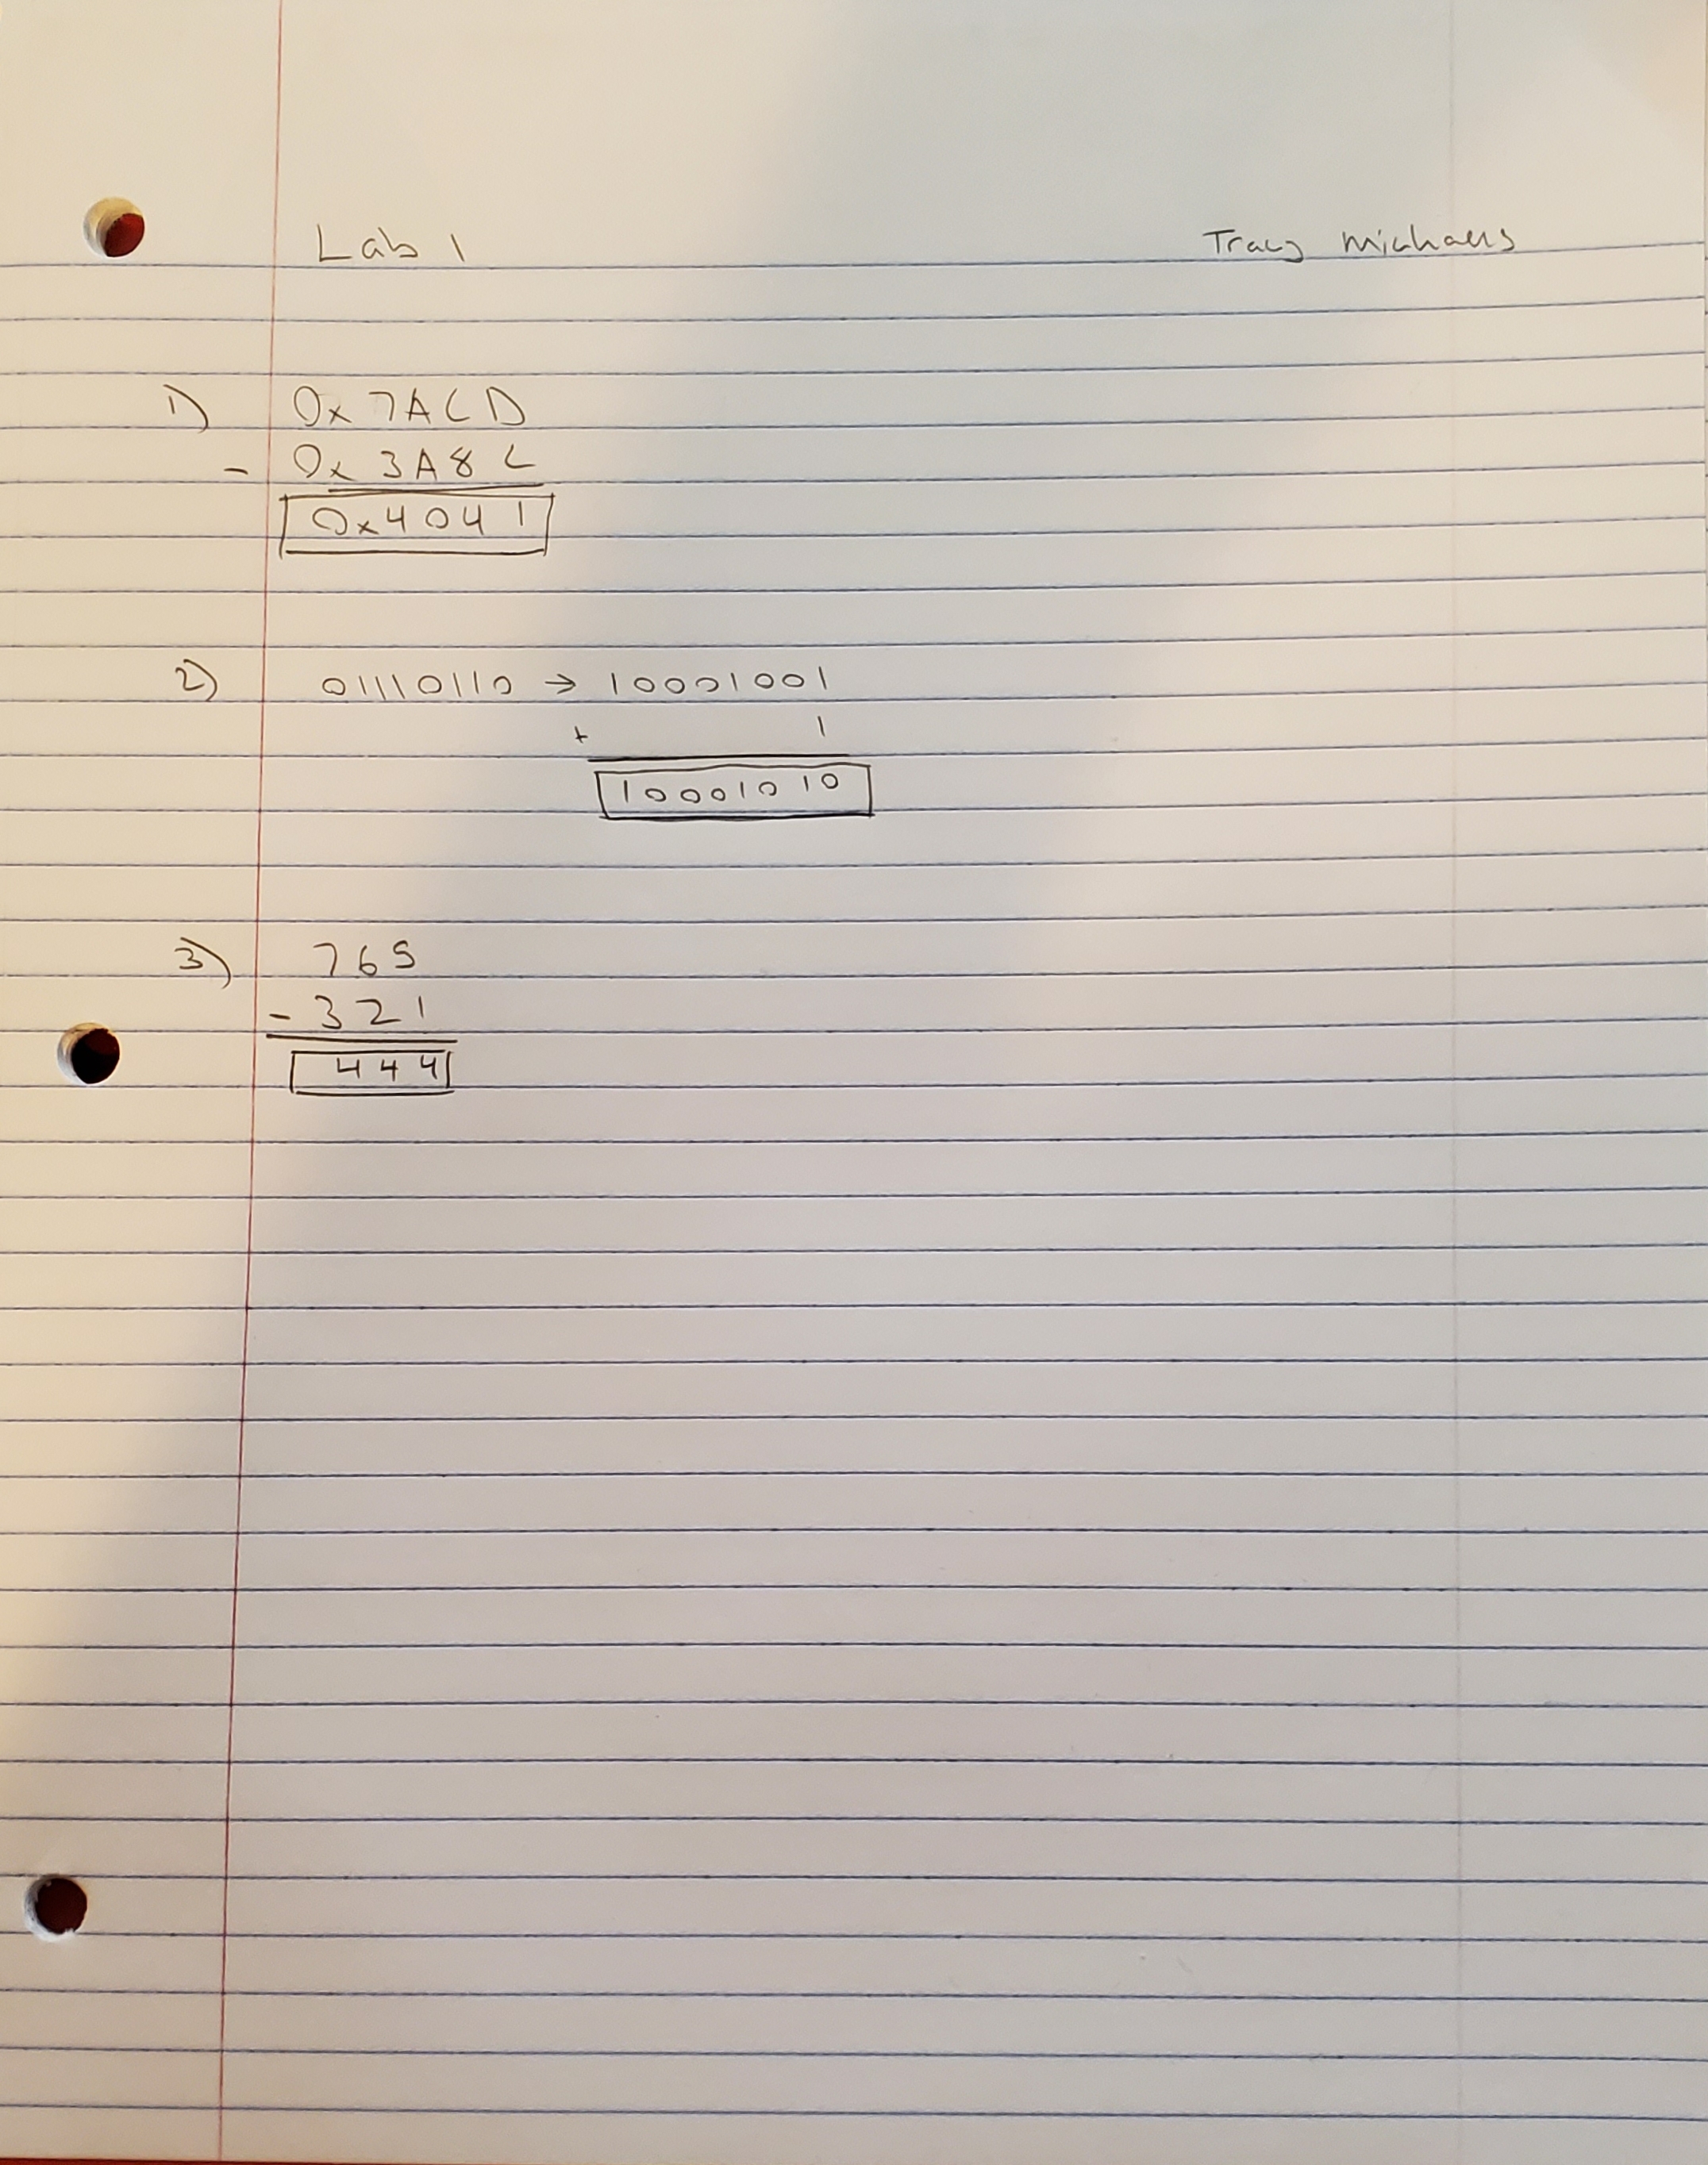 Lab 1 Tracy Michaels
1) 0x7ACD
- 0x3A8C
0x4041
2) 01110110 → 10001001
+ 1
10001010
3) 765
- 321
444